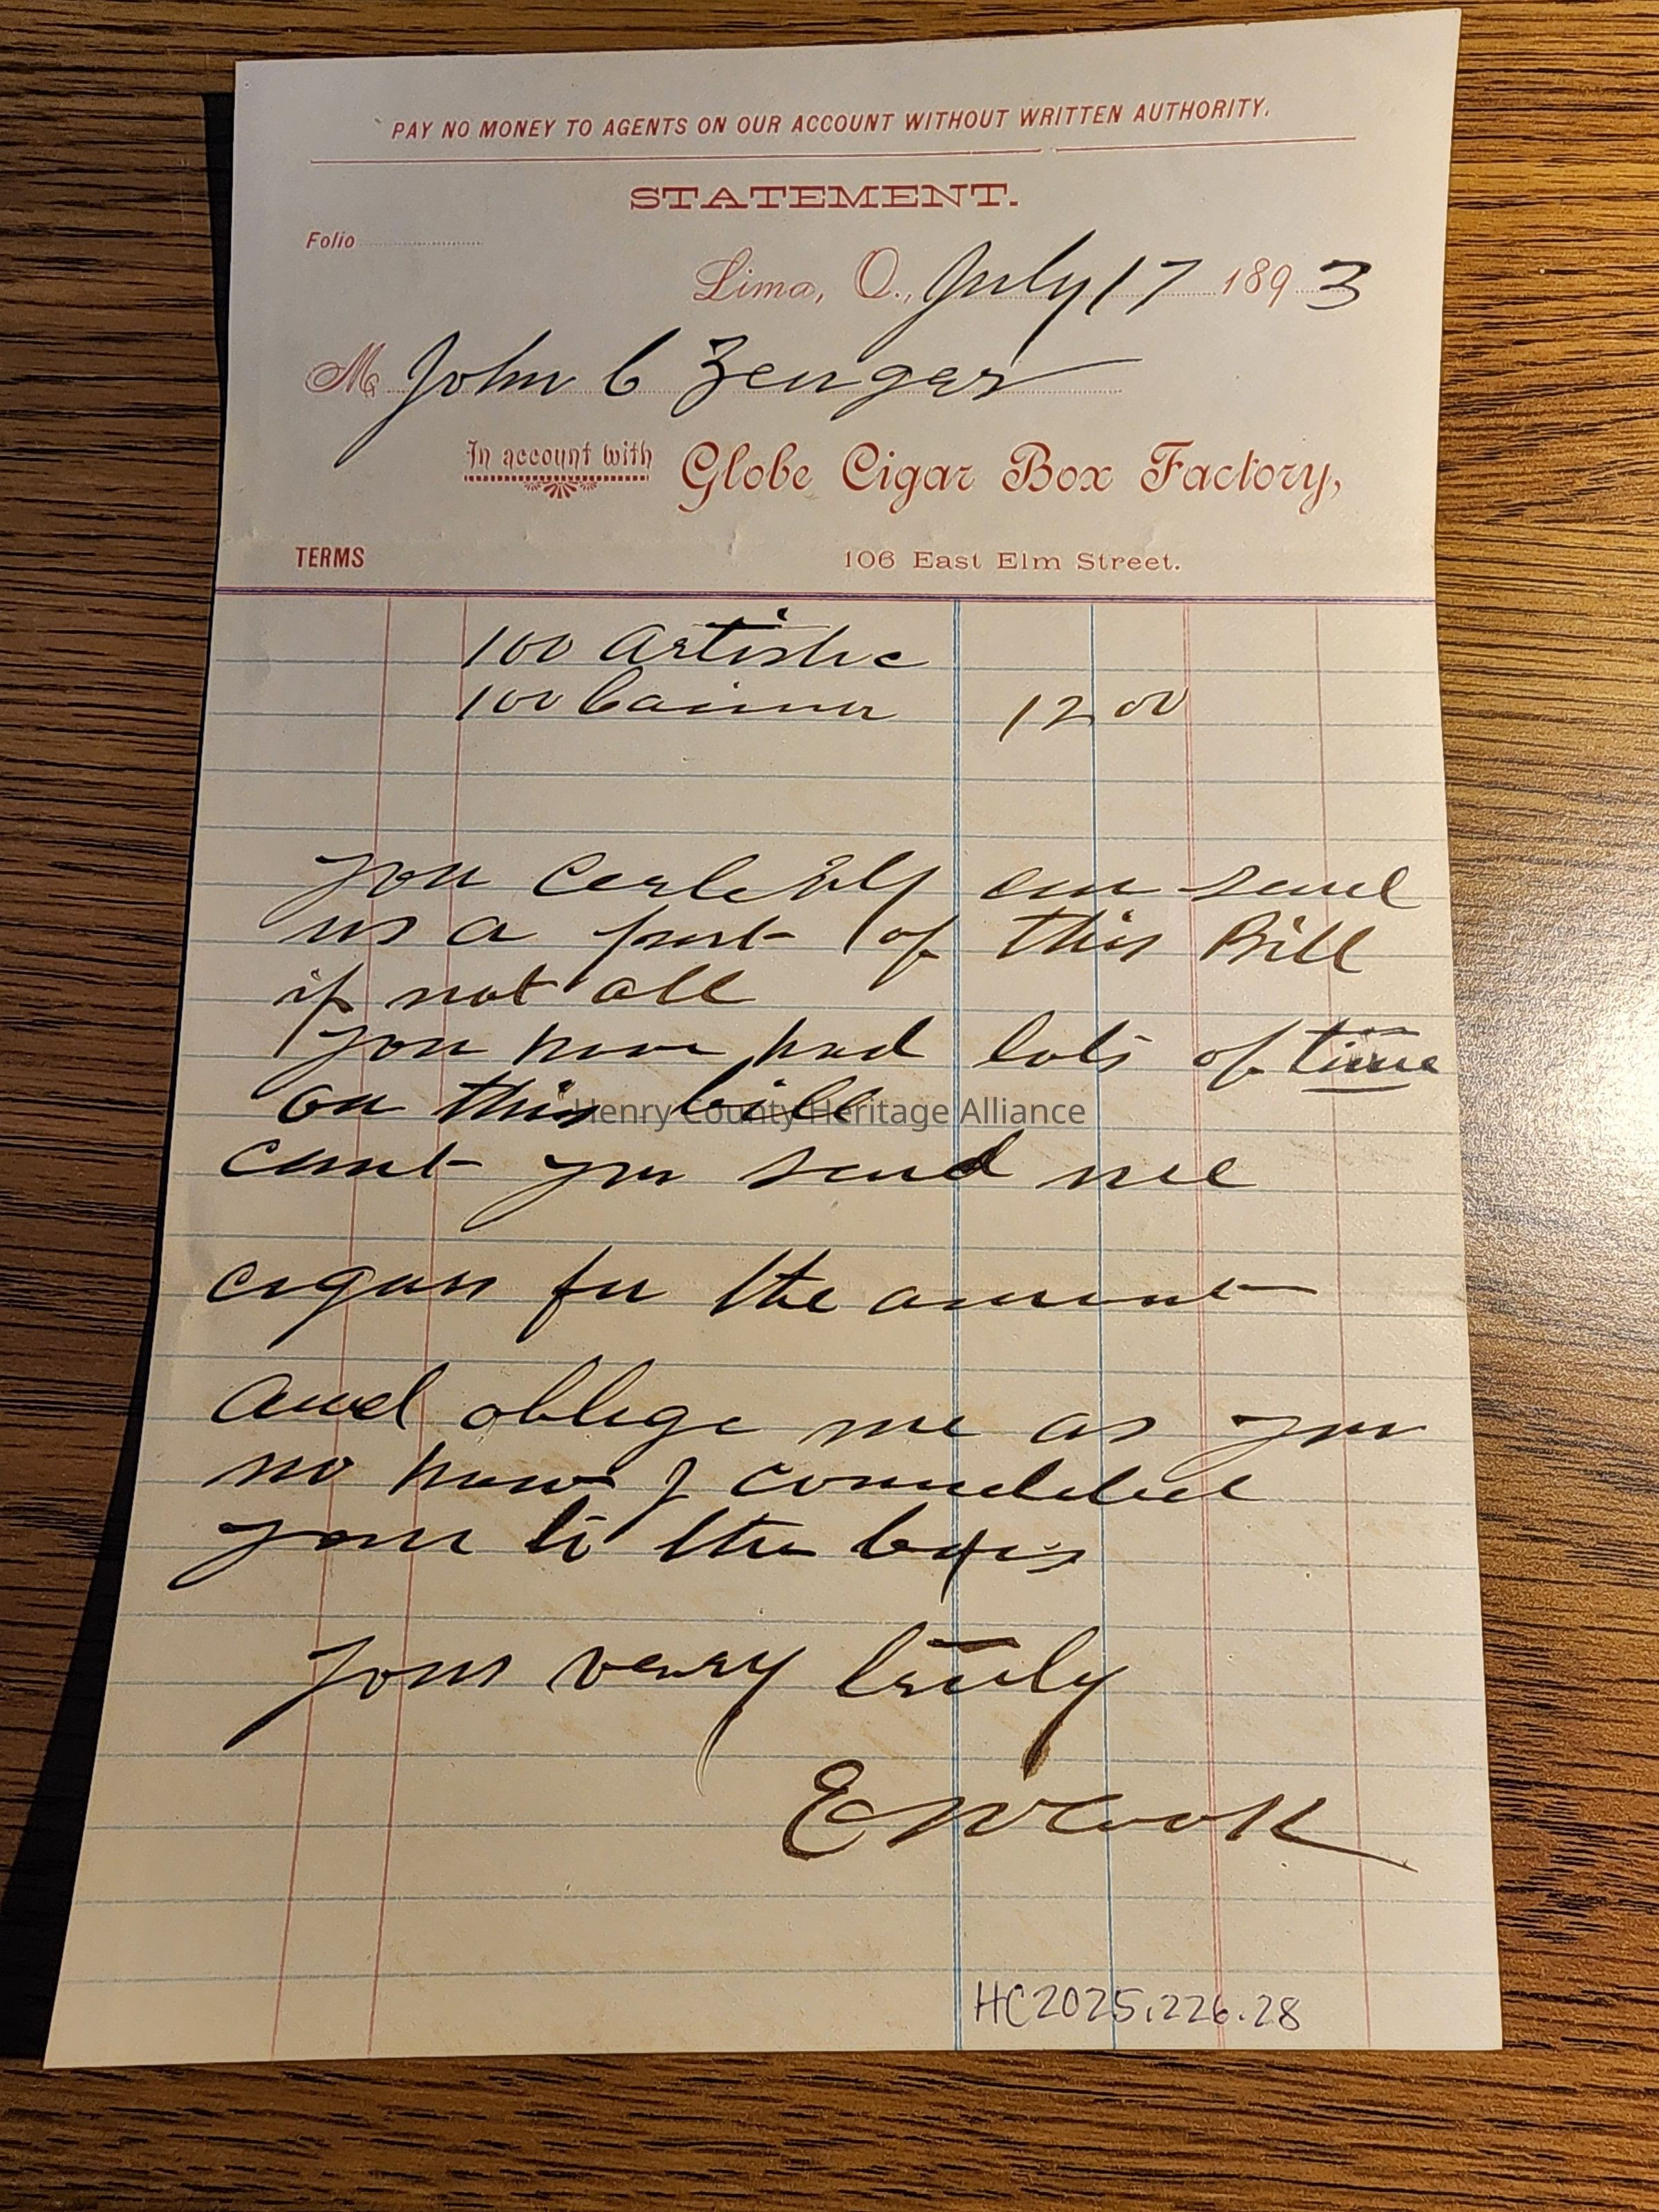 PAY NO MONEY TO AGENTS ON OUR ACCOUNT WITHOUT WRITTEN AUTHORITY.
STATEMENT.
Folio
Lima, O., July 17 1893
M John C Zenger
In account with Globe Cigar Box Factory,
TERMS
106 East Elm Street.
100 Artistic
100 12 00
you can send
us a part of this Bill
if not all
you have had lots of time
on this bill
Henry County Heritage Alliance
cant you send me
cigars for the amount
and oblege me as you
no how I
you to the boxes
Yours verry truly
E W Cook
HC2025.226.28